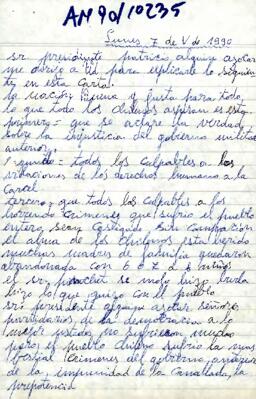 AN90/10235
Lunes 7 de V de 1990
sr presidente patricio alguin asocar
me dirijo a ud para esplicarle lo siguien
te en esta carta.
la nación buena y justa para todo
lo que todo los chilenos aspiran es esto
primero = que se aclare la verdad
sobre la injusticia del gobierno militar
anterior,
segundo = todos los culpables a las
violaciones de los derechos humano a la
carcel
tercero, que todos los culpables a los
horrendo crimenes que sufrio el pueblo
entero, sean castigado, sin compracion
el alma de los chilenos esta herido
muchas madres de familia quedaron
abandonada con 6 o 7 d 8 niños
el sr, pinochet se mofo hizo burla
hizo lo que quizo con el pueblo
sr presidente alguin asocar señores
partidarios, de la democracia a lo
mejor ustedes no sufrieron mucho
pero, el pueblo chileno sufrio la mas
bestial crimenes del gobierno, anterior
de la, impunidad de la canallada, la
prepotencia